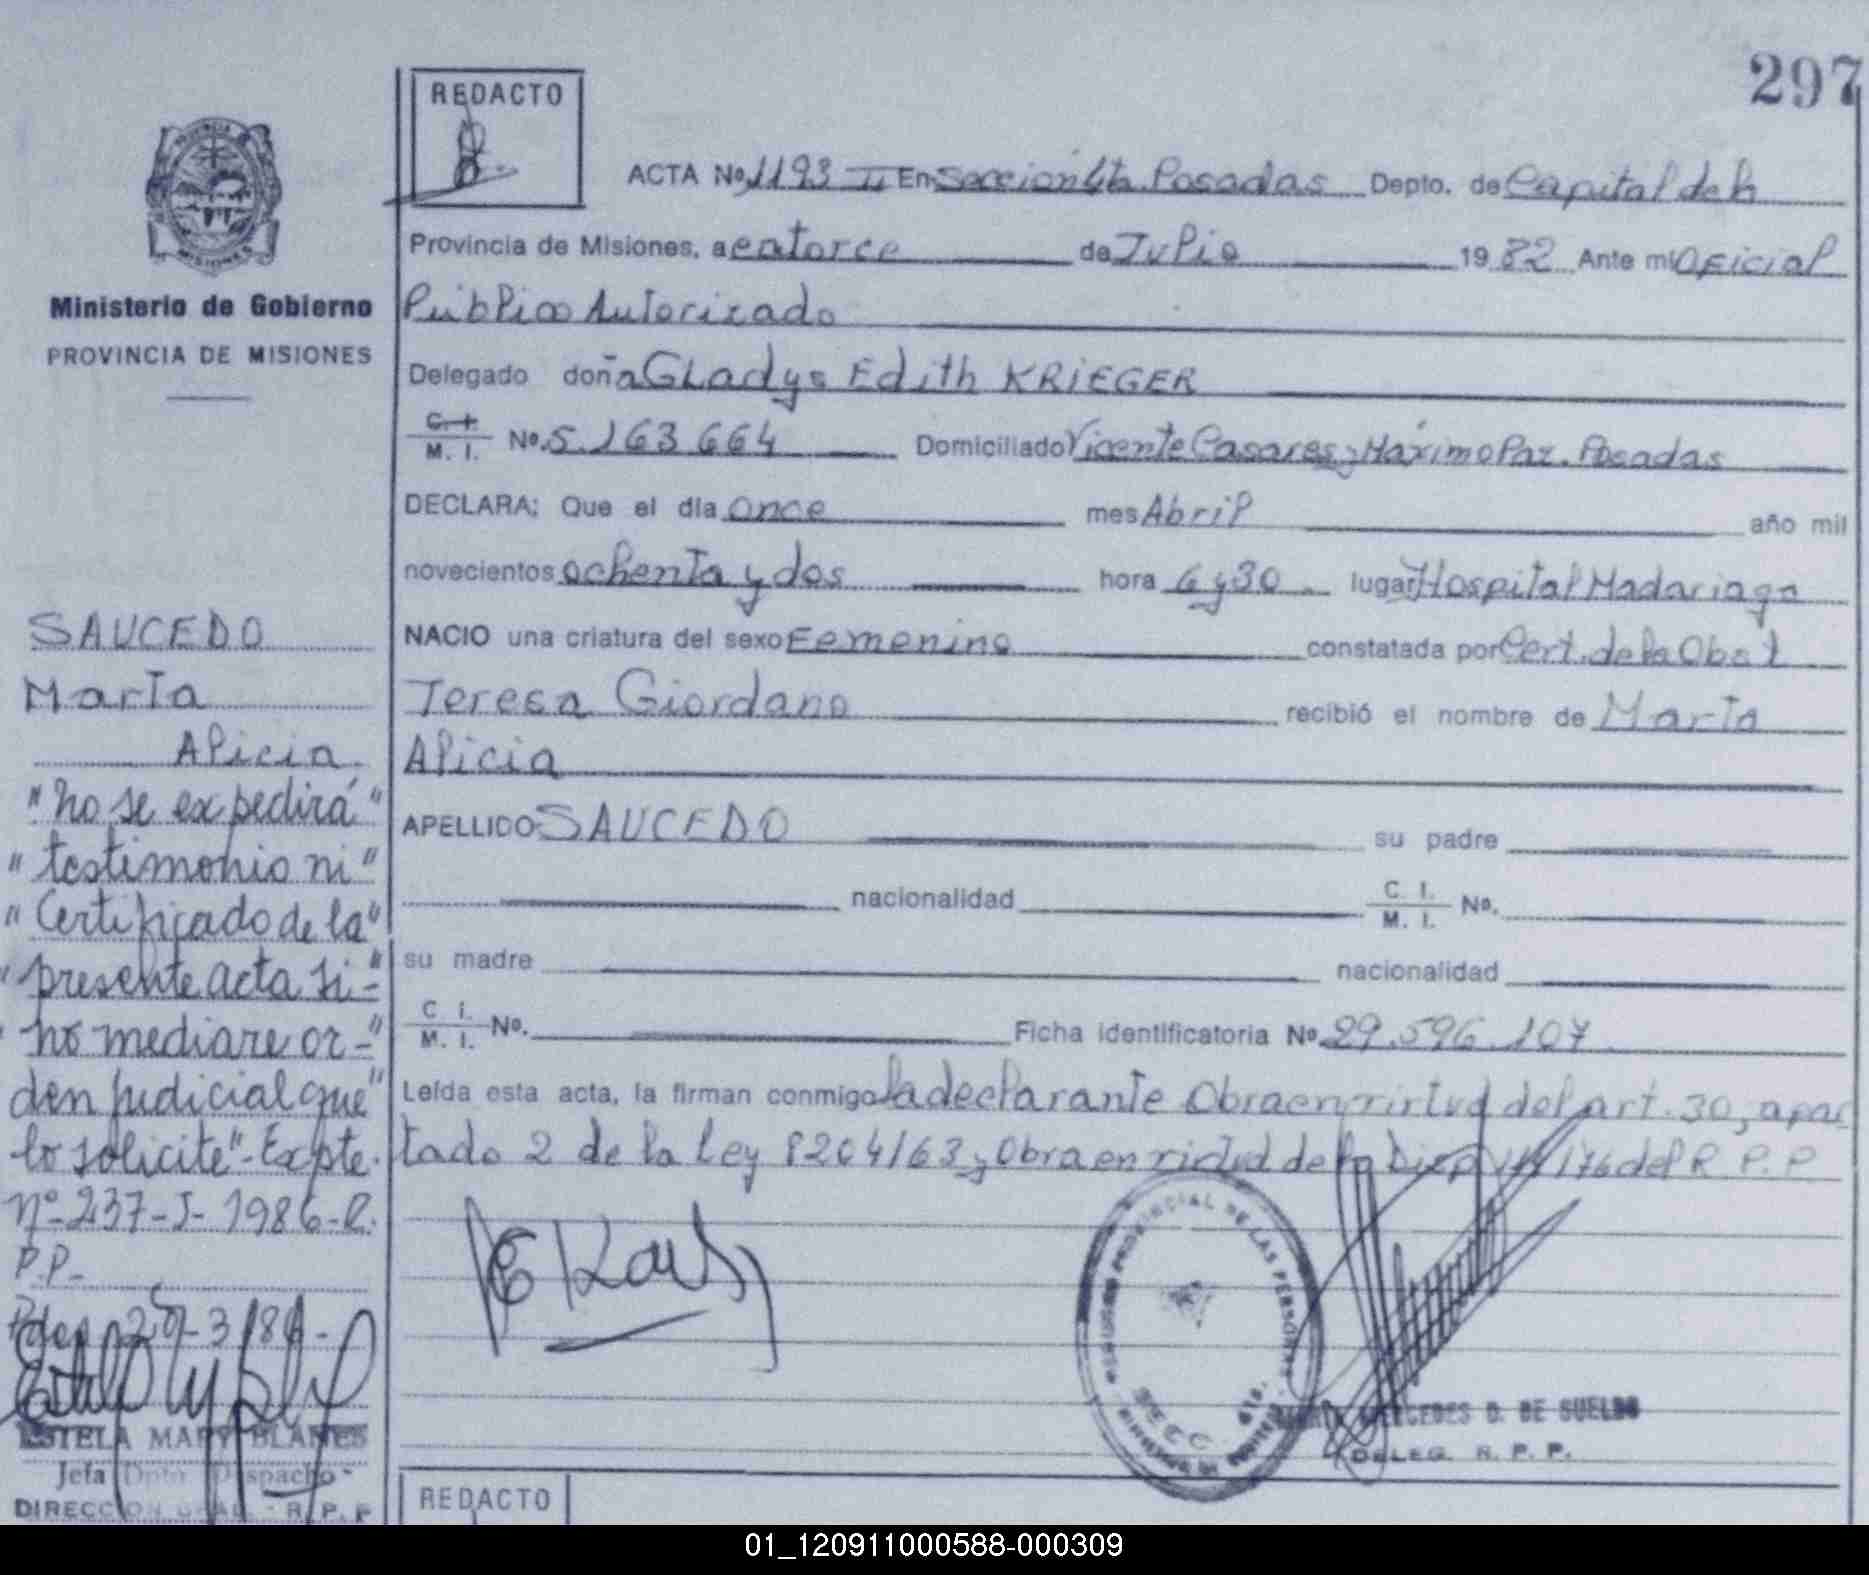 297
REDACTO
ACTA No. 1193 II En Sección 4ta. Posadas Depto. de Capital de la
Provincia de Misiones, a catorce de Julio 19 82 Ante mi Oficial
Público Autorizado
Delegado doña Gladys Edith KRIEGER
C. I.
M. I. No. 5.163.664 Domiciliado Vicente Casares y Máximo Paz. Posadas
DECLARA: Que el día once mes Abril año mil
novecientos ochenta y dos hora 6 y 30 lugar Hospital Madariaga
NACIO una criatura del sexo Femenino constatada por Cert. de la Obst
Teresa Giordano recibió el nombre de Marta
Alicia
APELLIDO SAUCEDO su padre
nacionalidad C. I.
M. I. No.
su madre nacionalidad
C. I.
M. I. No. Ficha identificatoria No. 29.596.107
Leída esta acta, la firman conmigo la declarante Obra en virtud del art. 30, apar
tado 2 de la Ley 8204/63 y Obra en virtud de la Disp 176 del R.P.P
REGISTRO PROVINCIAL DE LAS PERSONAS
MERCEDES D. DE SUELDO
DELEG. R. P. P.
REDACTO
PROVINCIA DE
MISIONES
Ministerio de Gobierno
PROVINCIA DE MISIONES
SAUCEDO
Marta
Alicia
"no se expedirá"
"testimonio ni"
"Certificado de la"
"presente acta si-"
"no mediare or-"
den judicial que"
lo solicite"- Expte.
nº 237-J-1986-R.
P.P.-
ESTELA MARY BLANES
Jefa Dpto Despacho
DIRECCION GRAL - R. P. P
01_120911000588-000309